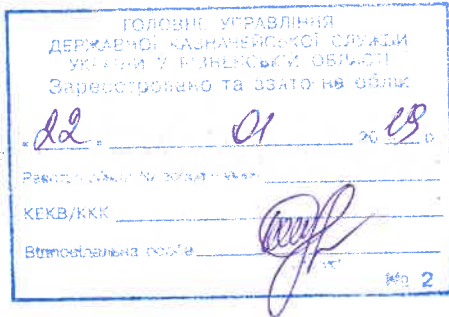 ГОЛОВНЕ УПРАВЛІННЯ
ДЕРЖАВНОЇ КАЗНАЧЕЙСЬКОЇ СЛУЖБИ
УКРАЇНИ У РІВНЕНСЬКІЙ ОБЛАСТІ
Зареєстровано та взято на облік
"22" 01 2019 р.
КЕКВ/ККК
Відповідальна особа
№ 2